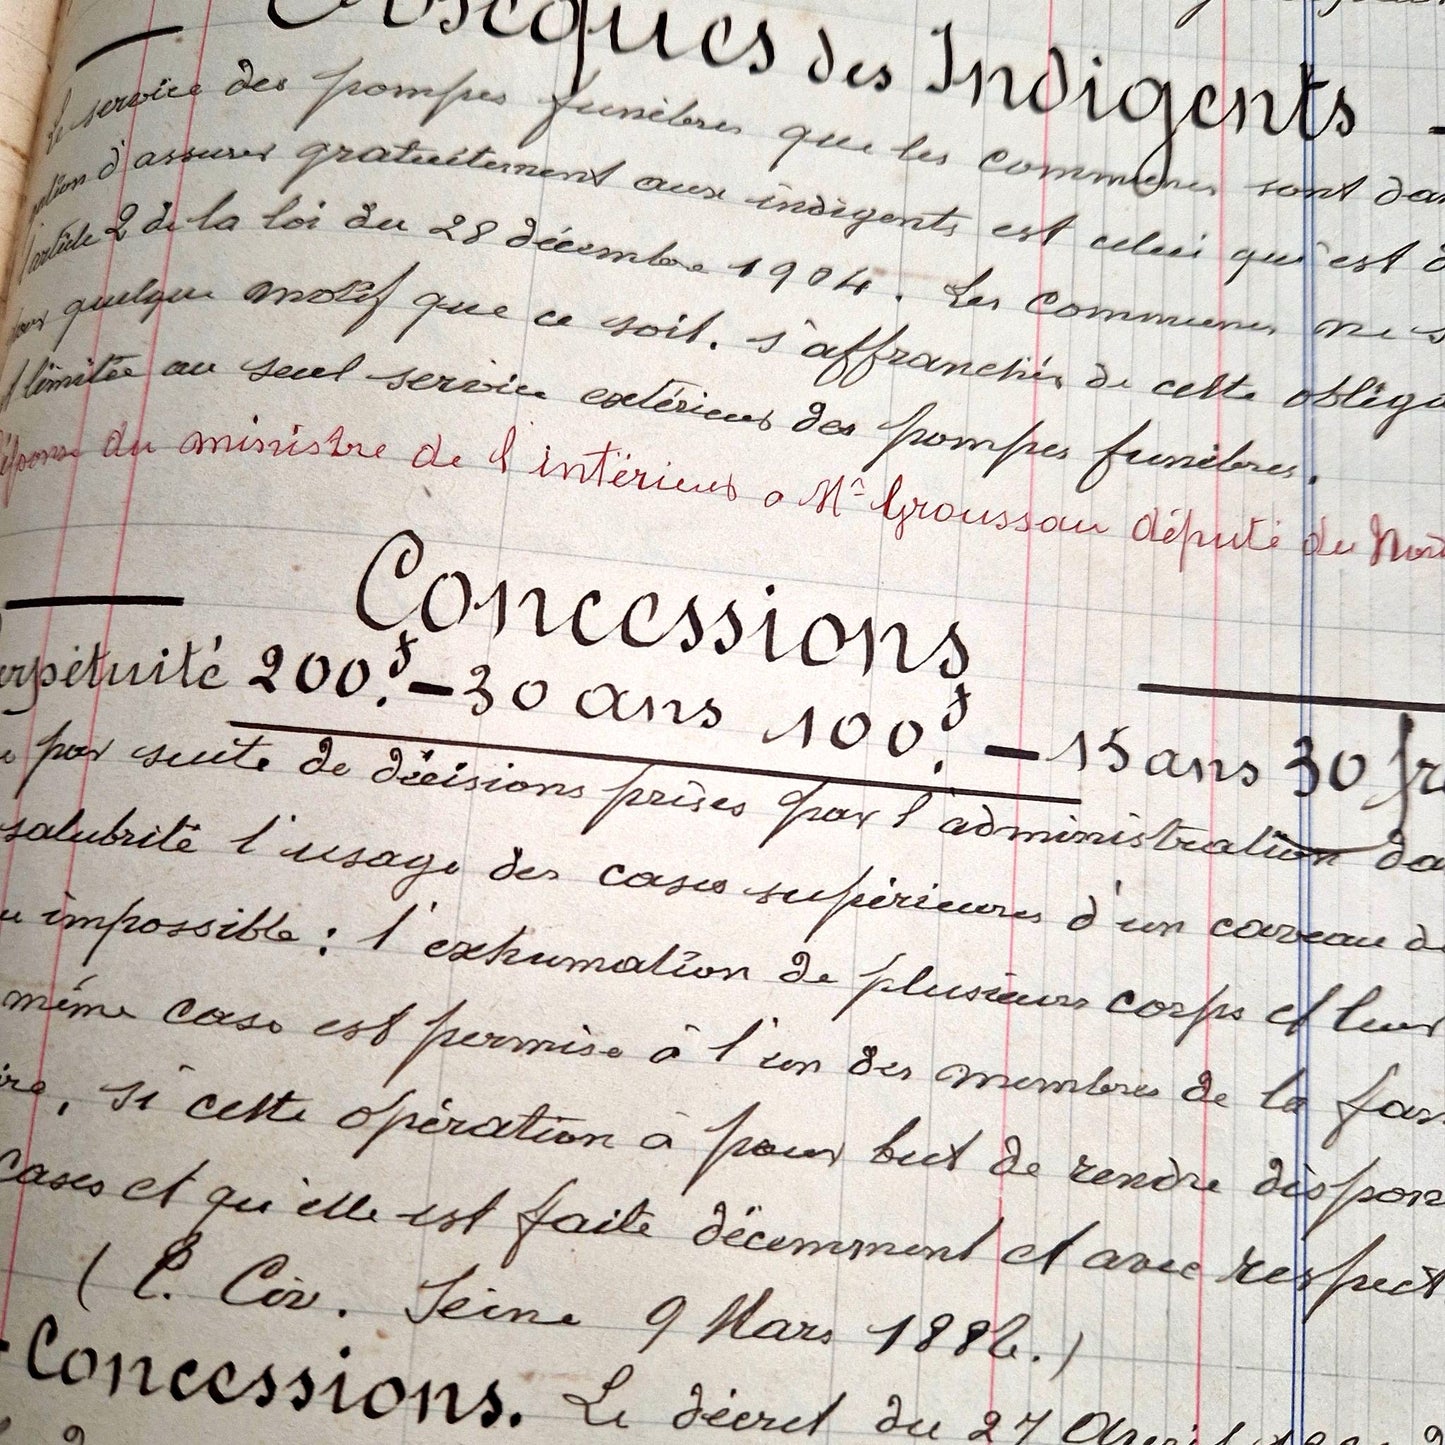 Obsèques des Indigents -
Le service des pompes funèbres que les communes sont dans
d'assurer gratuitement aux indigents est celui qui est
l'article 2 de la loi du 28 décembre 1904. Les communes ne
quelque motif que ce soit. s'affranchir de cette oblig
limitée au seul service extérieur des pompes funèbres.
du ministre de l'intérieur a Mr Groussau député du Nord
Concessions
erpétuité 200.f - 30 ans 100.f - 15 ans 30 fr
par suite de décisions prises par l'administration da
salubrité l'usage des cases supérieures d'un caveau de
impossible : l'exhumation de plusieurs corps et leur
même case est permise à l'un des membres de la fam
ire, si cette opération a pour but de rendre dispon
cases et qu'elle est faite décemment et avec respect
( Civ. Seine 9 Mars 1886.)
- Concessions. Le décret du 27 Avril